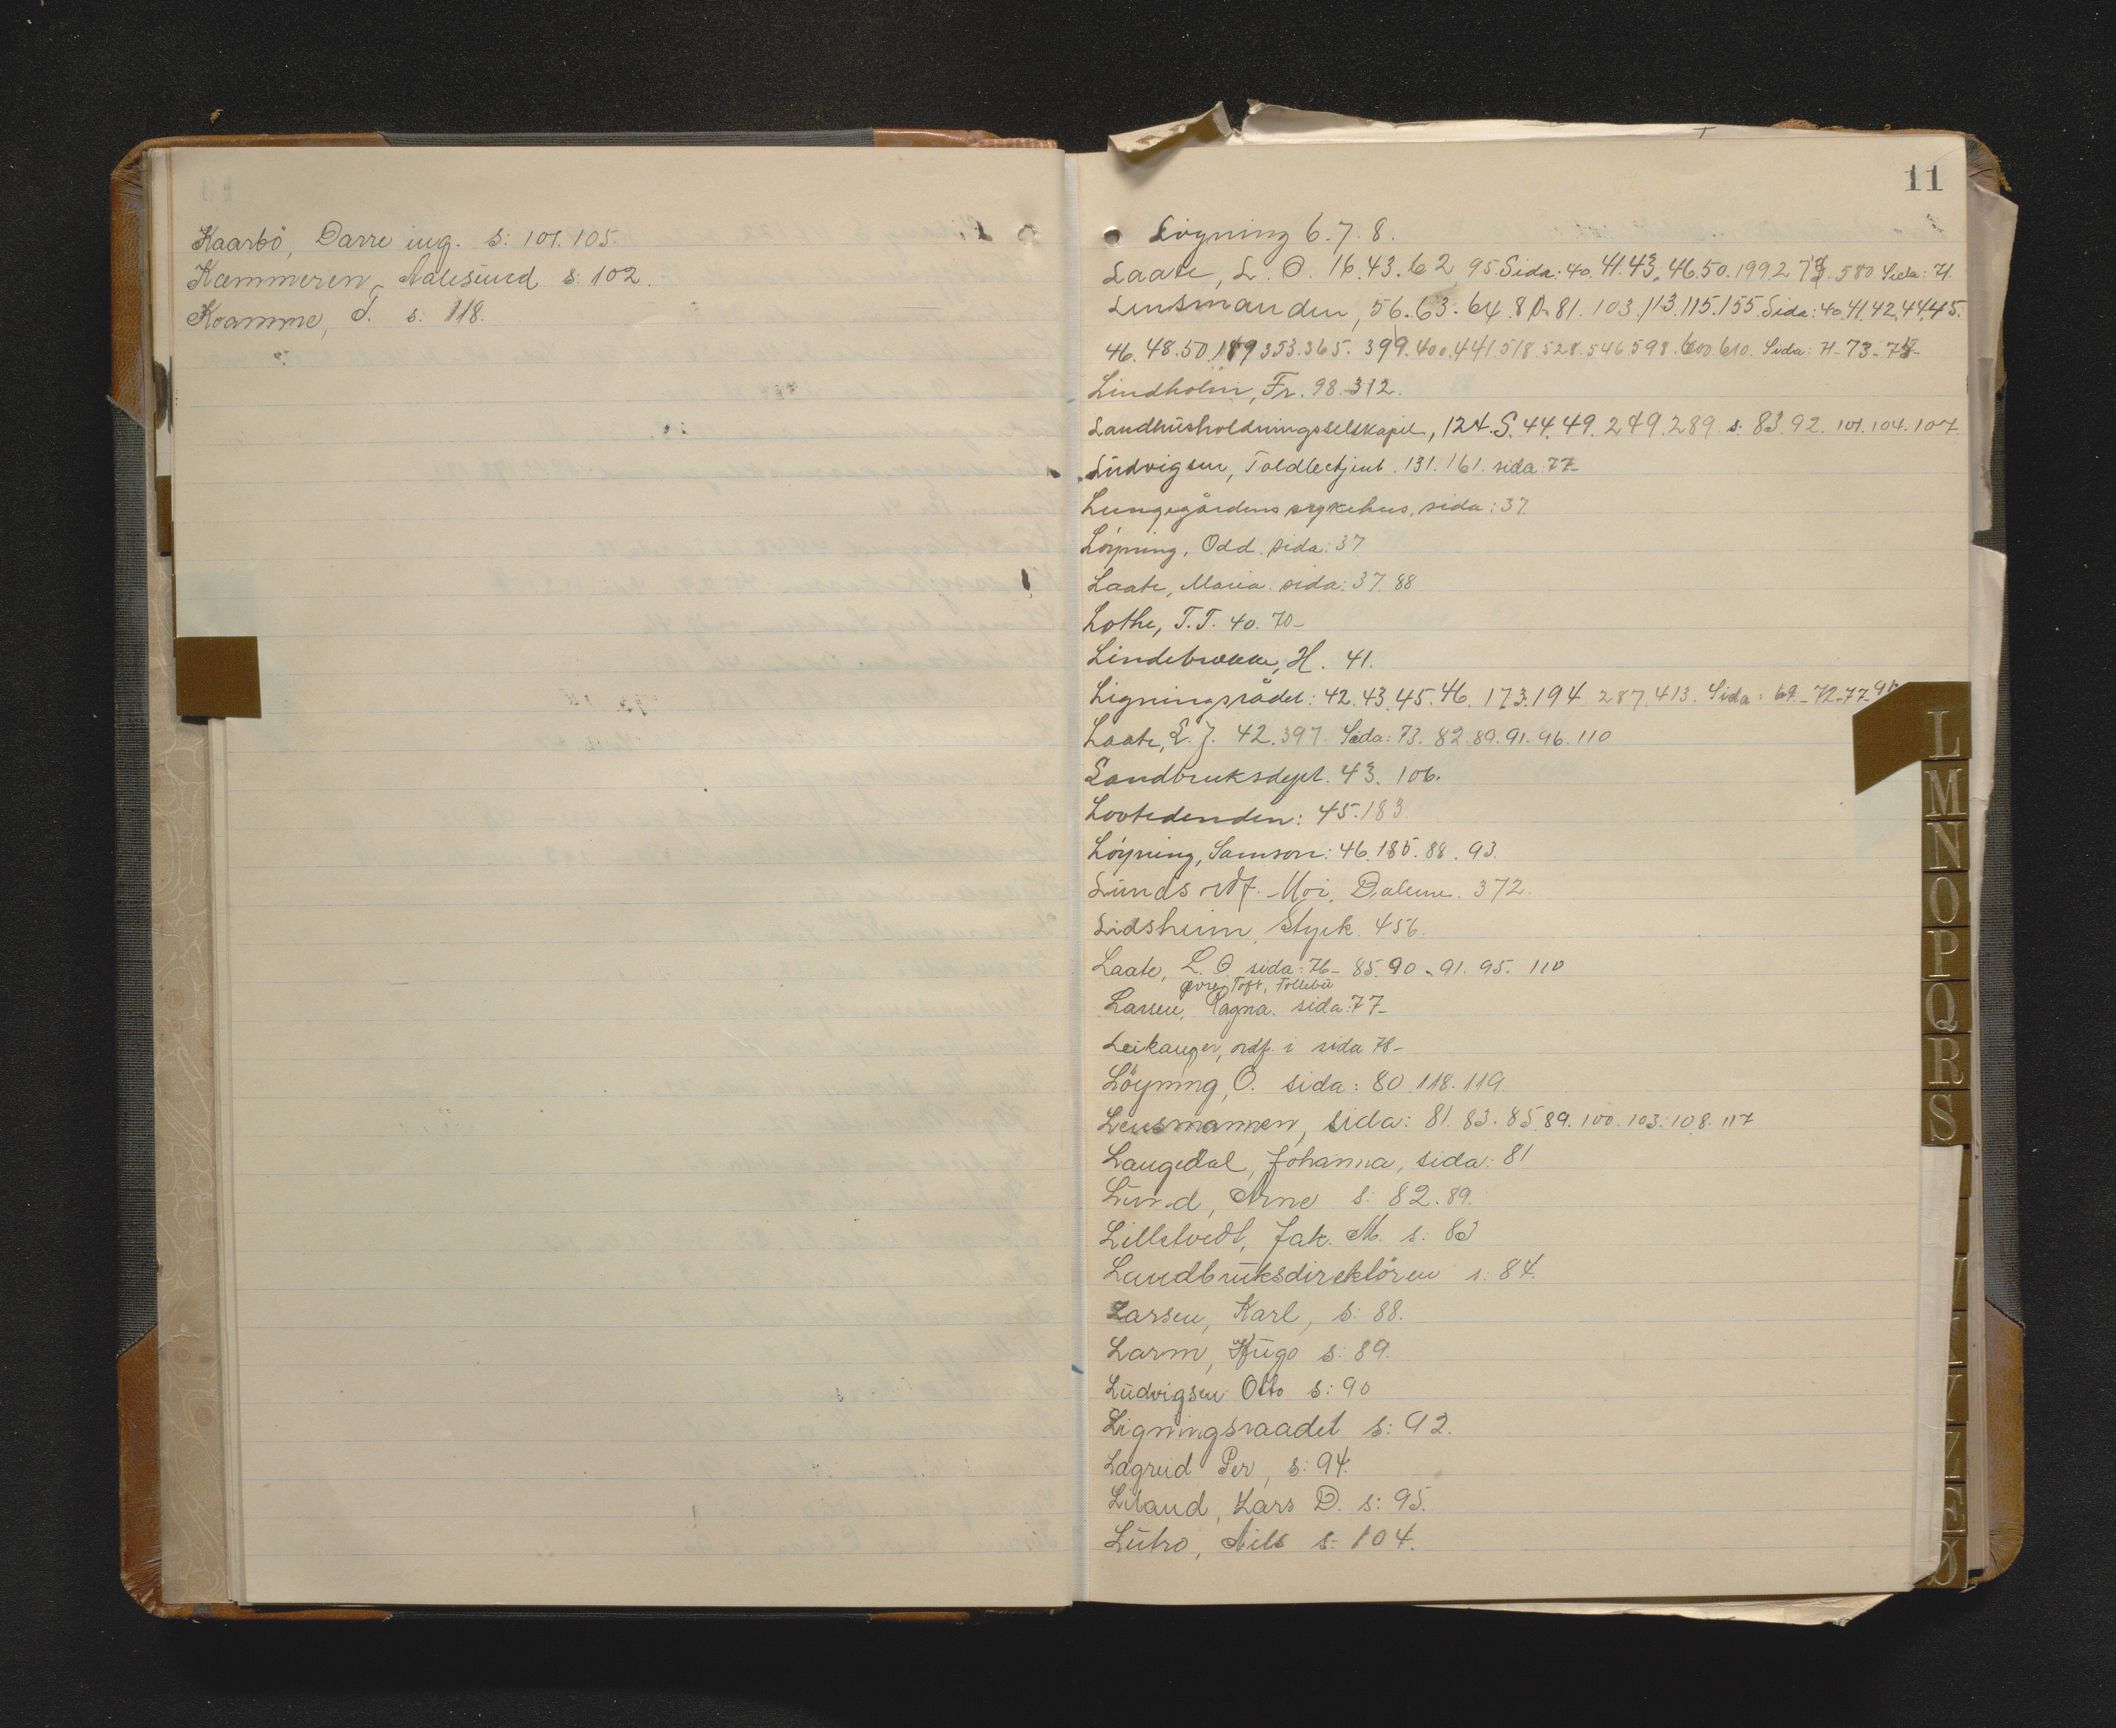 Kaarbö, Darre ing. s: 101. 105.
Kæmmeren, Aalesund s: 102.
Kvamme, S. s: 118.
11
Löyning 6. 7. 8.
Laate, L. O. 16. 43. 62. 95 Sida: 40. 41. 43. 46. 50. 199. 580 Sida: 71.
Lensmanden, 56. 63. 64. 80. 81. 103. 113. 115. 155. Sida: 40. 41. 42. 44. 45.
46. 48. 50. 189 353. 365. 399. 400. 441 518. 528. 546 598. 600. 610. Sida: 71- 73- 78-
Lindholm, Fr. 98. 312.
Landhusholdningsselskapet, 124. S. 44. 49. 249. 289 s: 83. 92. 101. 104. 107.
Ludvigsen, Toldbetjent. 131. 161. sida 77-
Lungegårdens sykehus, sida: 37.
Löyning, Odd. sida: 37
Laate, Maria. sida: 37. 88
Lothe, T. T. 40. 70-
Lindebrække, H. 41.
Ligningsrådet: 42. 43. 45. 46. 173. 194 287. 413. Sida: 69- 72- 77
Laate, L. J. 42. 397. Sida: 73. 82. 89. 91. 96. 110
Landbruksdept. 43. 106.
Lovtidenden: 45. 183
Löyning, Samson: 46. 185. 88. 93.
Lunds ordf. Moi, Dalene. 372.
Lidsheim, Styrk. 456.
Laate, L. O. sida: 76- 85. 90. 91. 95. 110
Øvre Toft, Follebu
Larsen, Ragna. sida: 77-
Leikanger, ordf. i sida 78-
Löyning, O. sida: 80. 118. 119.
Lensmannen, sida: 81. 83. 85. 89. 100. 103. 108. 117
Langedal, Johanna, sida: 81
Lund, Arne s: 82. 89.
Lilletvedt, Jak. M. s: 83
Landbruksdirektören s: 84.
Larsen, Karl, s: 88.
Larm, Hugo s: 89.
Ludvigsen Otto s: 90
Ligningsraadet s: 92.
Lægreid Per, s: 94.
Liland, Lars D. s: 95.
Lutro, Nils s: 104.
L
M
N
O
P
Q
R
S
V
Z
Æ
Ø